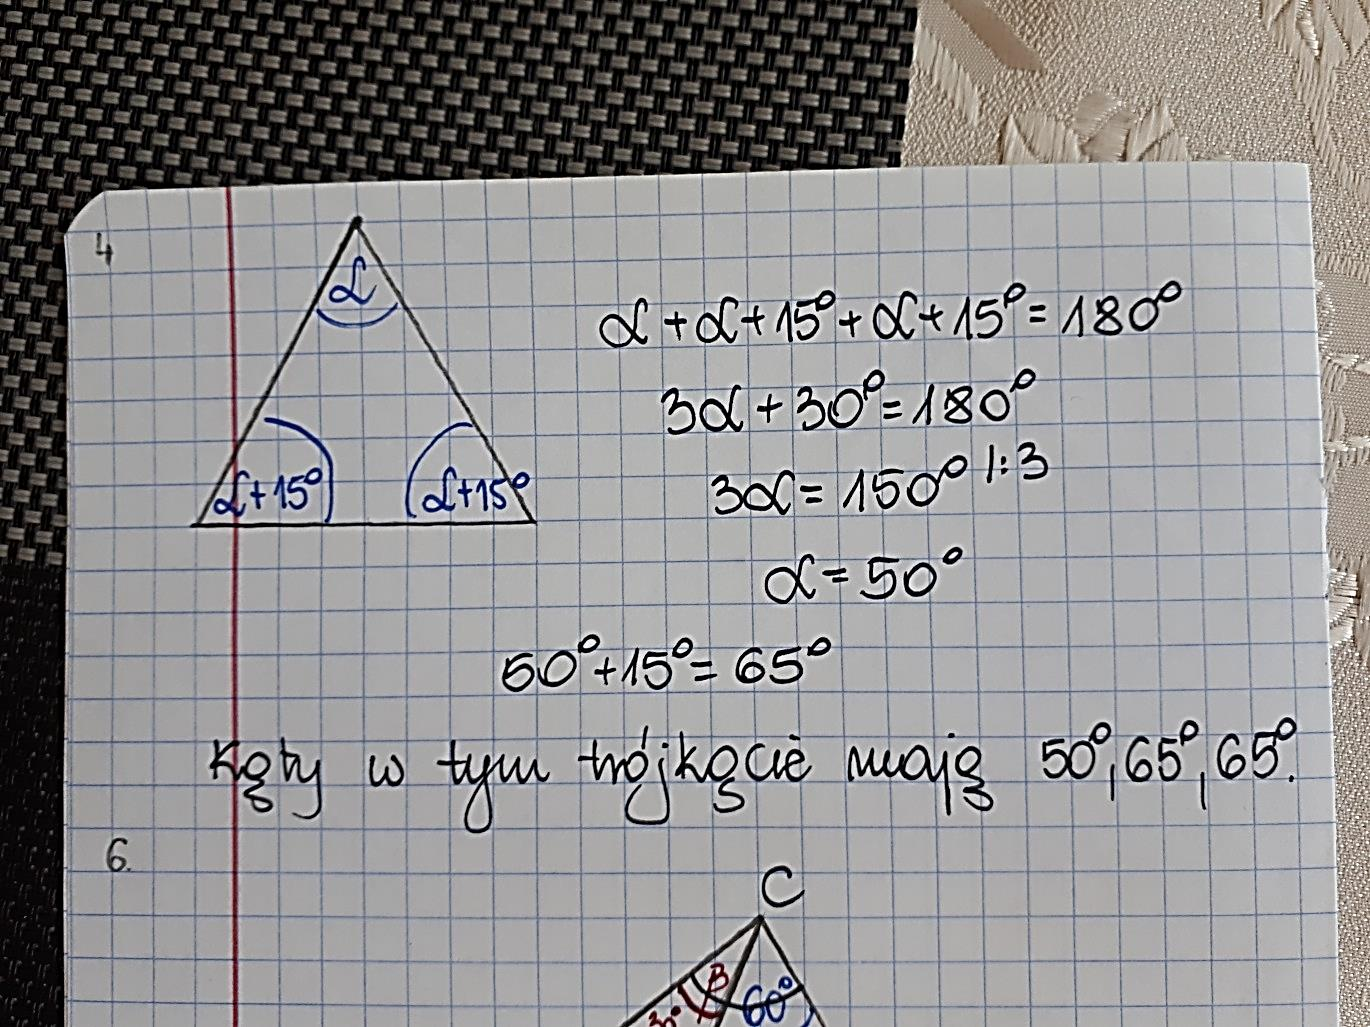 4
α
α+15°
α+15°
α+α+15°+α+15°=180°
3α+30°=180°
3α=150° |:3
α=50°
50°+15°=65°
Kąty w tym trójkącie mają 50°, 65°, 65°.
6.
C
β
60°